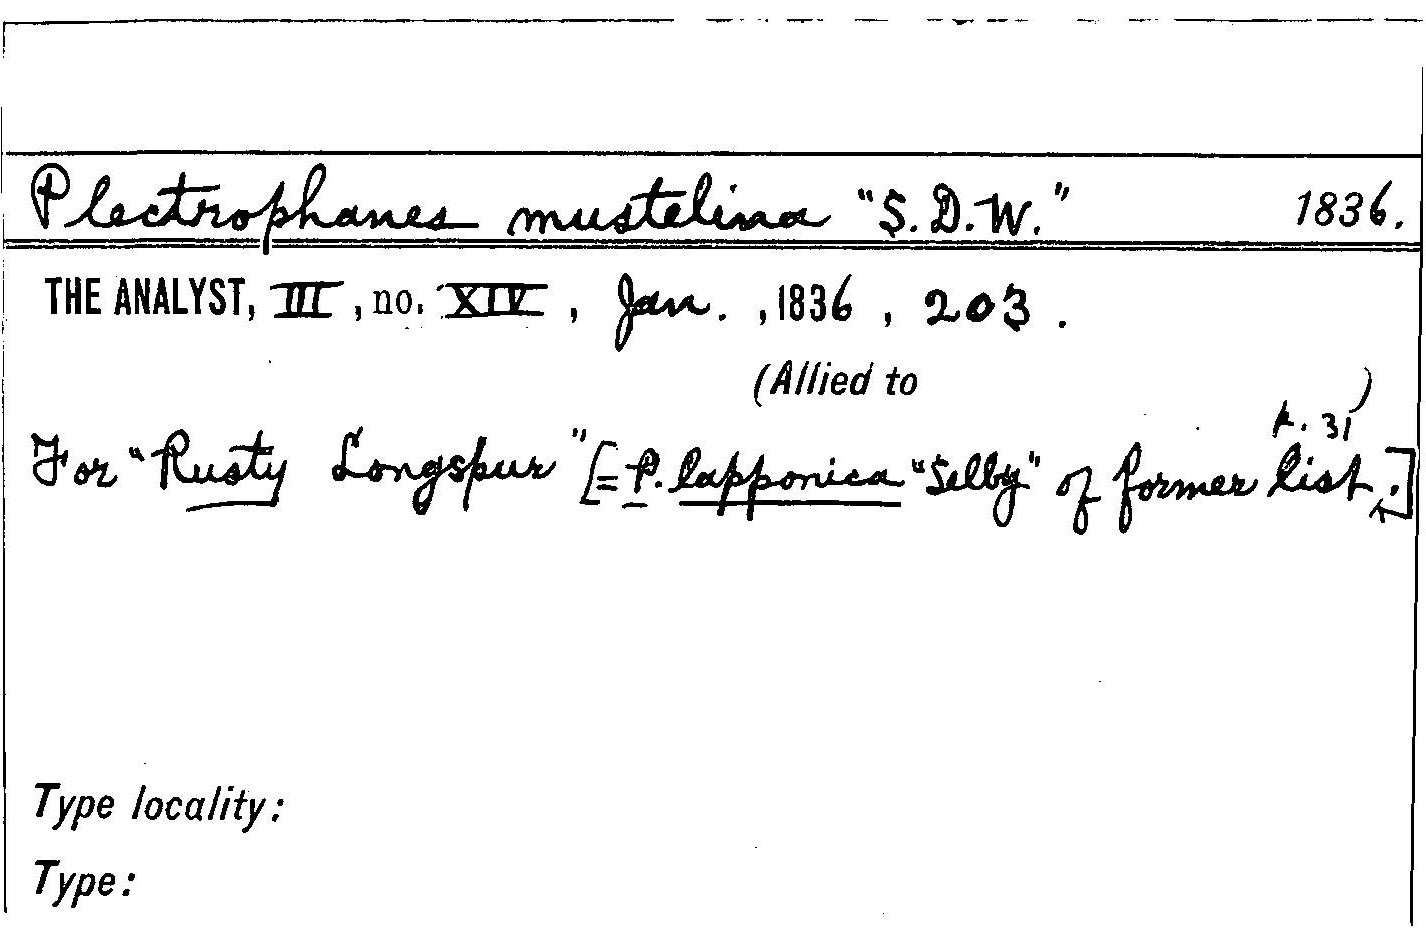 Plectrophanes mustelina "S.D.W." 1836.
THE ANALYST, III, no. XIV, Jan., 1836, 203.
(Allied to )
p. 31
For "Rusty Longspur" [= P. lapponica "Selby" of former list.]
Type locality:
Type: